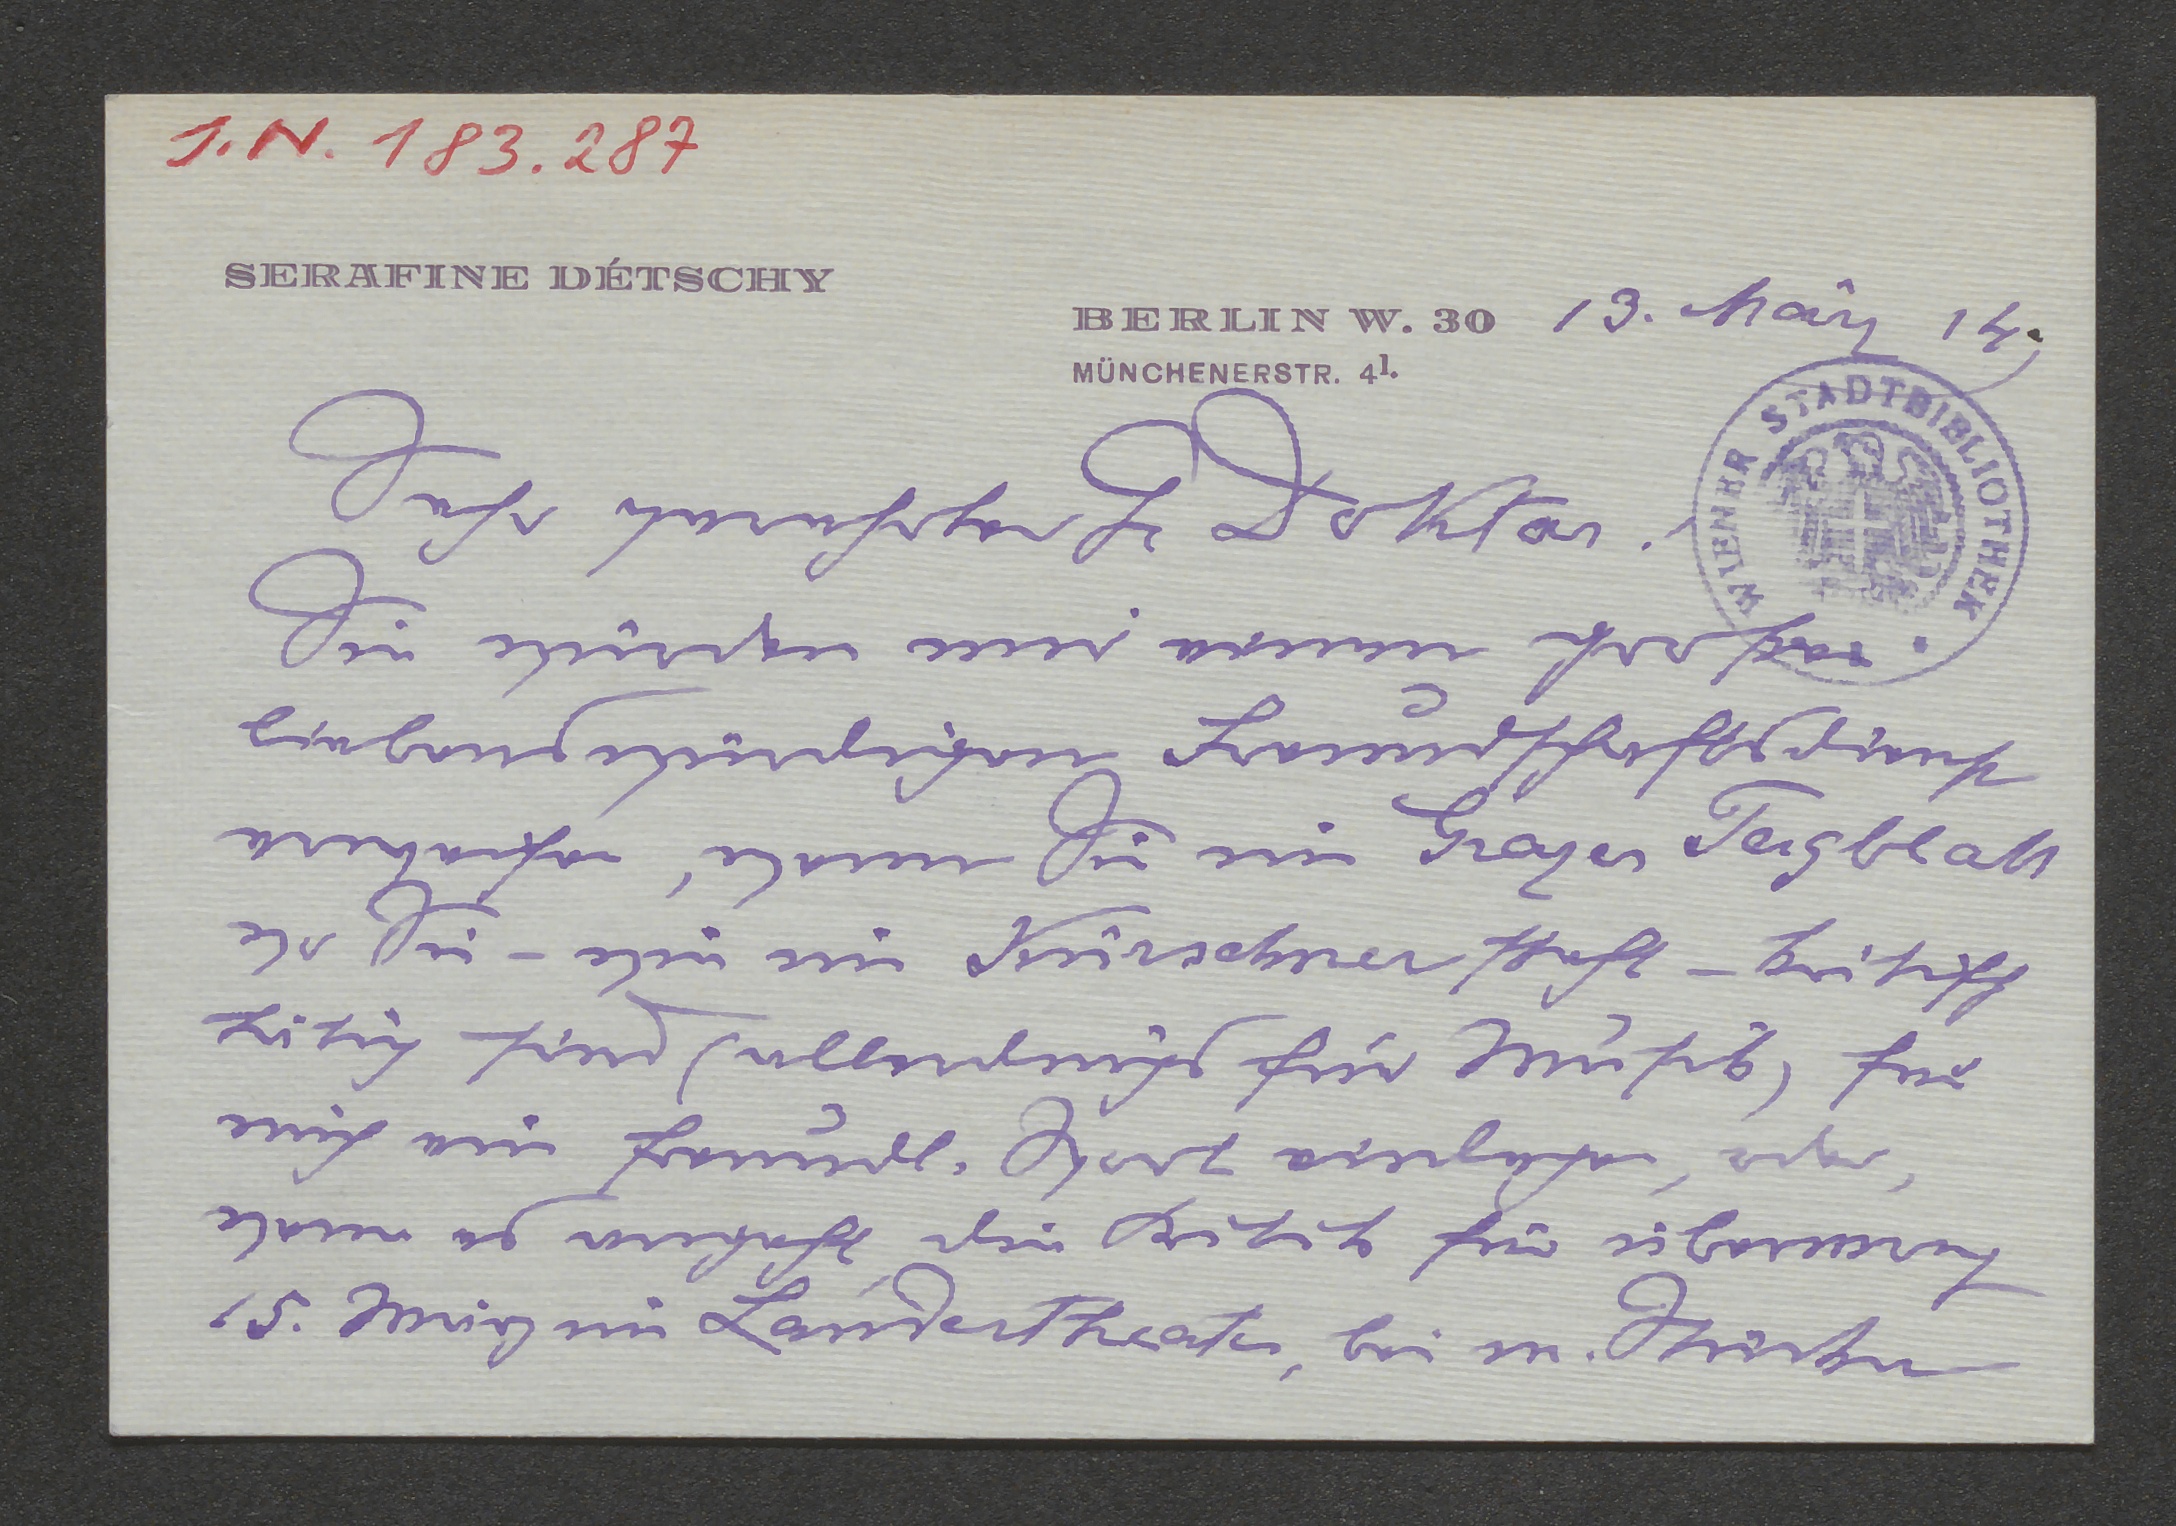 I.N. 183.287
SERAFINE DÉTSCHY
BERLIN W. 30 13. März 14.
MÜNCHENERSTR. 4I.
WIENER STADTBIBLIOTHEK
Sehr verehrter Herr Doktor!
Sie würden mir einen großen
liebenswürdigen Freundschaftsdienst
erweisen, wenn Sie im Grazer Tagblatt
wo Sie – wie im Kürschner steht – Kritik
Kritik sind (allerdings für Musik) für
mich ein freundl. Wort einlegen, oder,
wenn es angeht, die Kritik für übermorgen
15. März im Landestheater, bei m. Stücken